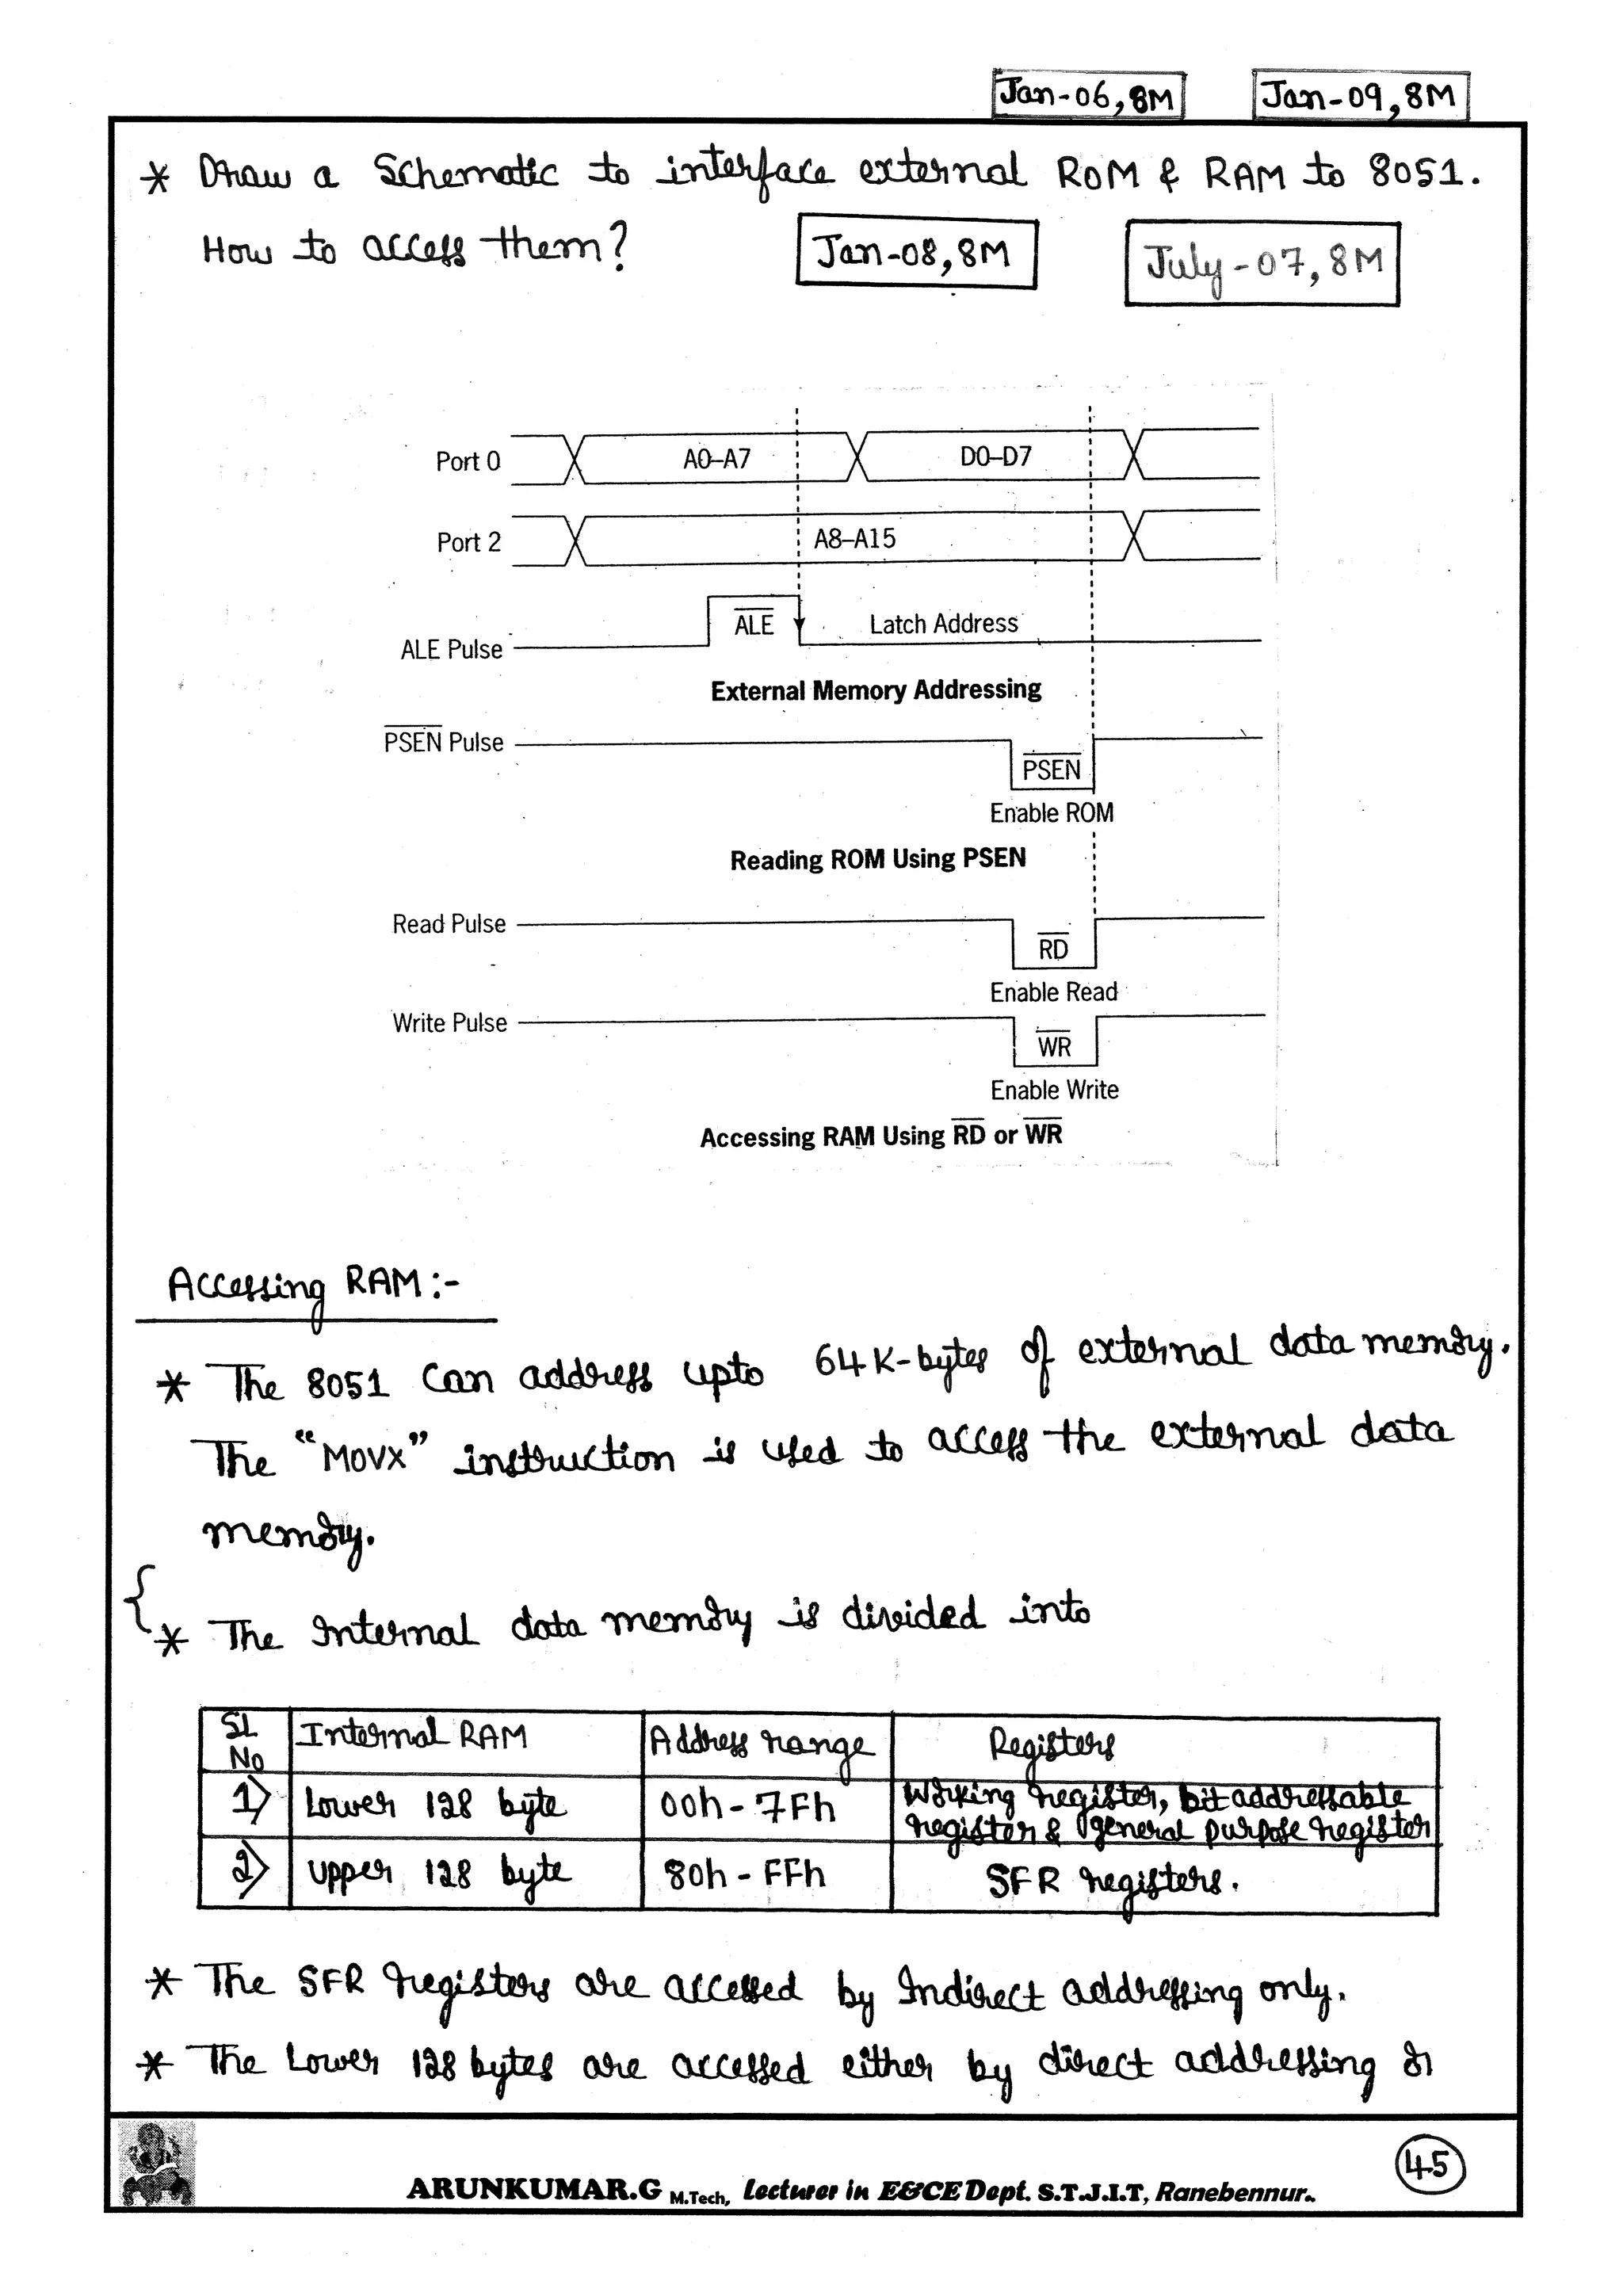 Jan-06, 8M Jan-09, 8M
* Draw a Schematic to interface external ROM & RAM to 8051.
How to access them? Jan-08, 8M July-07, 8M
Port 0 A0–A7 D0–D7
Port 2 A8–A15
ALE Pulse ALE Latch Address
External Memory Addressing
PSEN Pulse PSEN
Enable ROM
Reading ROM Using PSEN
Read Pulse RD
Enable Read
Write Pulse WR
Enable Write
Accessing RAM Using RD or WR
Accessing RAM :-
* The 8051 Can address upto 64K-bytes of external data memory.
The "MOVX" instruction is used to access the external data
memory.
{* The Internal data memory is divided into
SL No Internal RAM Address range Registers
1) Lower 128 byte 00h - 7Fh Working register, bit addressable
register & general purpose register
2) Upper 128 byte 80h - FFh SFR registers.
* The SFR registers are accessed by Indirect addressing only.
* The Lower 128 bytes are accessed either by direct addressing or
ARUNKUMAR.G M.Tech, Lecturer in E&CE Dept. S.T.J.I.T, Ranebennur.. 45